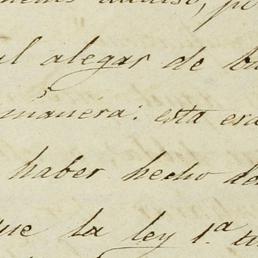 al alegar de
manera: esta era
haber hecho de
que la ley 1.ª